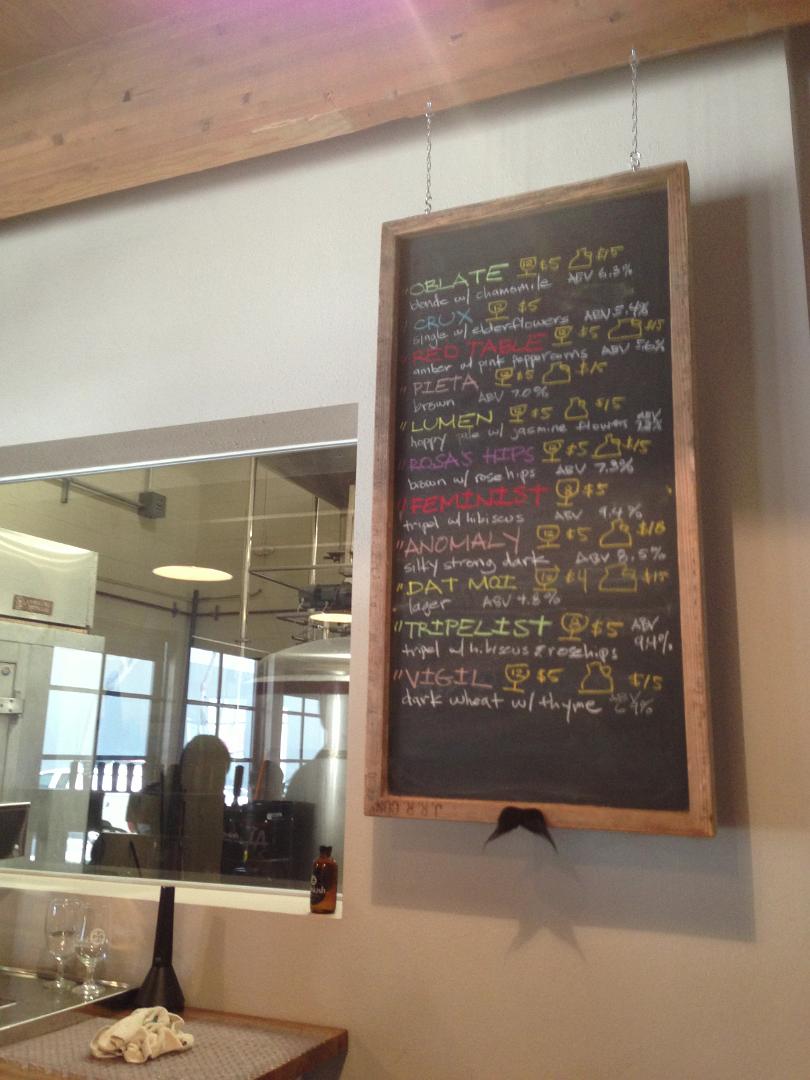 "OBLATE 12 $5 $15
blonde w/ chamomile ABV 6.3%
"CRUX 12 $5
single w/ elderflowers ABV 5.4%
"RED TABLE $5 $15
amber w/ pink peppercorns ABV 5.6%
"PIETA $5 $15
brown ABV 7.0%
"LUMEN $5 $15
hoppy pale w/ jasmine flowers ABV
"ROSA'S HIPS $5 $15
brown w/ rosehips ABV 7.3%
"FEMINIST $5
tripel w/ hibiscus ABV 9.4%
"ANOMALY $5 $18
silky strong dark ABV 8.5%
"DAT MOI $4 $15
lager ABV 4.8%
"TRIPELIST 8 $5 ABV
tripel w/ hibiscus & rosehips 9.4%
"VIGIL 12 $5 $15
dark wheat w/ thyme ABV
J.R.R. CON